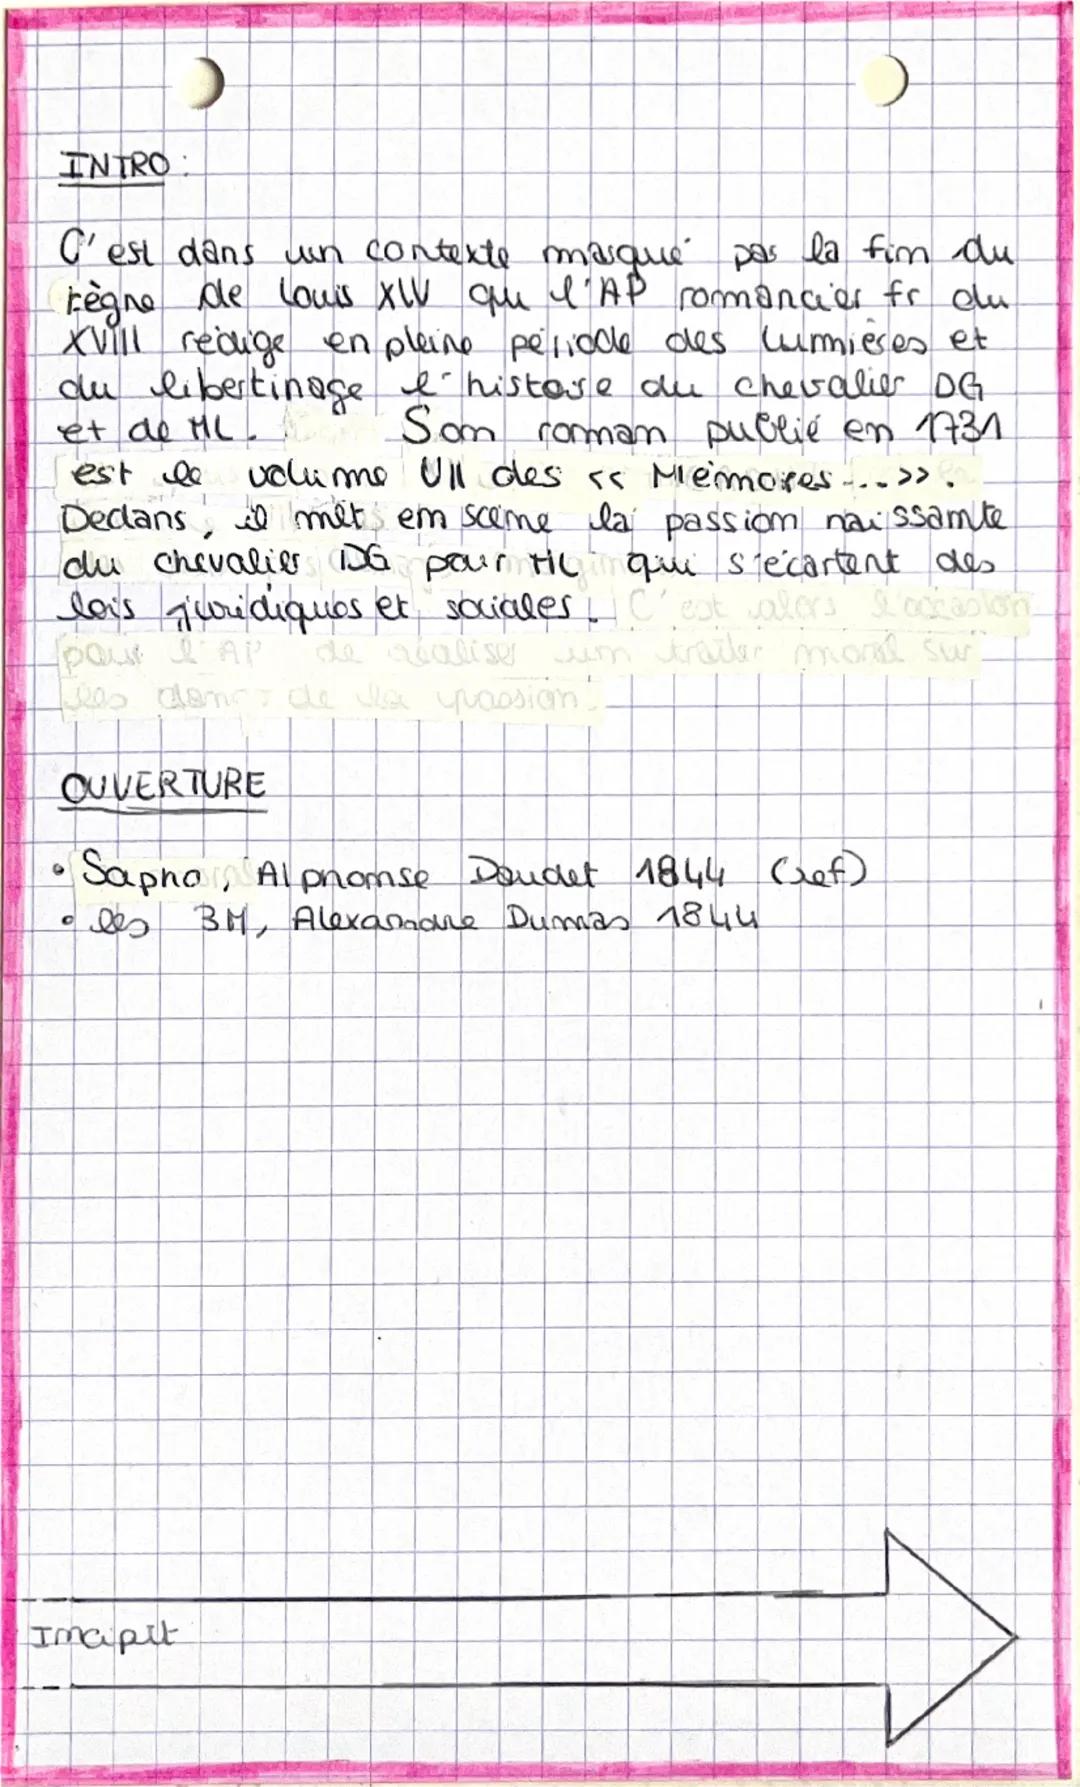 INTRO :
C'est dans un contexte marqué par la fin du
règne de Louis XIV qu l'AP romancier fr du
XVIII rédige en pleine période des Lumières et
du libertinage l'histore du chevalier DG
et de ML. Son roman publié en 1731
est le volume VII des << Mémores... >>.
Dedans, il met en scène la passion naissante
du chevalier DG pour ML qui s'écartent des
lois juridiques et sociales. C'est alors l'occasion
pour l'AP de réaliser un traiter moral sur
les de la passion.
OUVERTURE
• Sapho, Alphonse Daudet 1844 (ref)
• les 3M, Alexandre Dumas 1844
Incipit